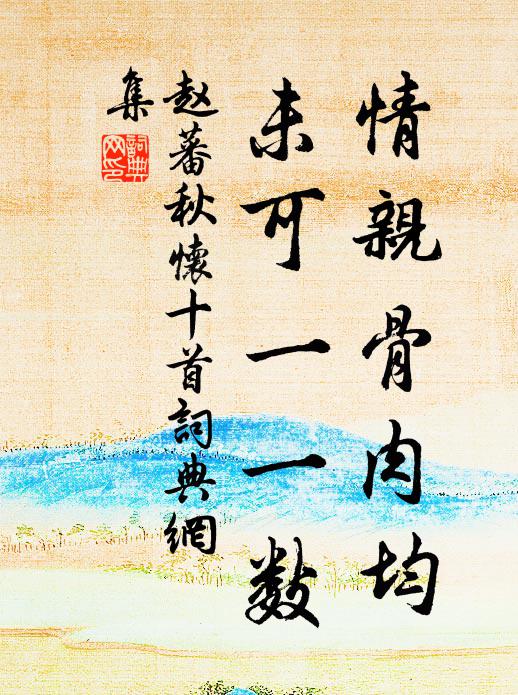 情親骨肉均
未可一一數
赵蕃秋懷十首詞典網
集
詞典
网印